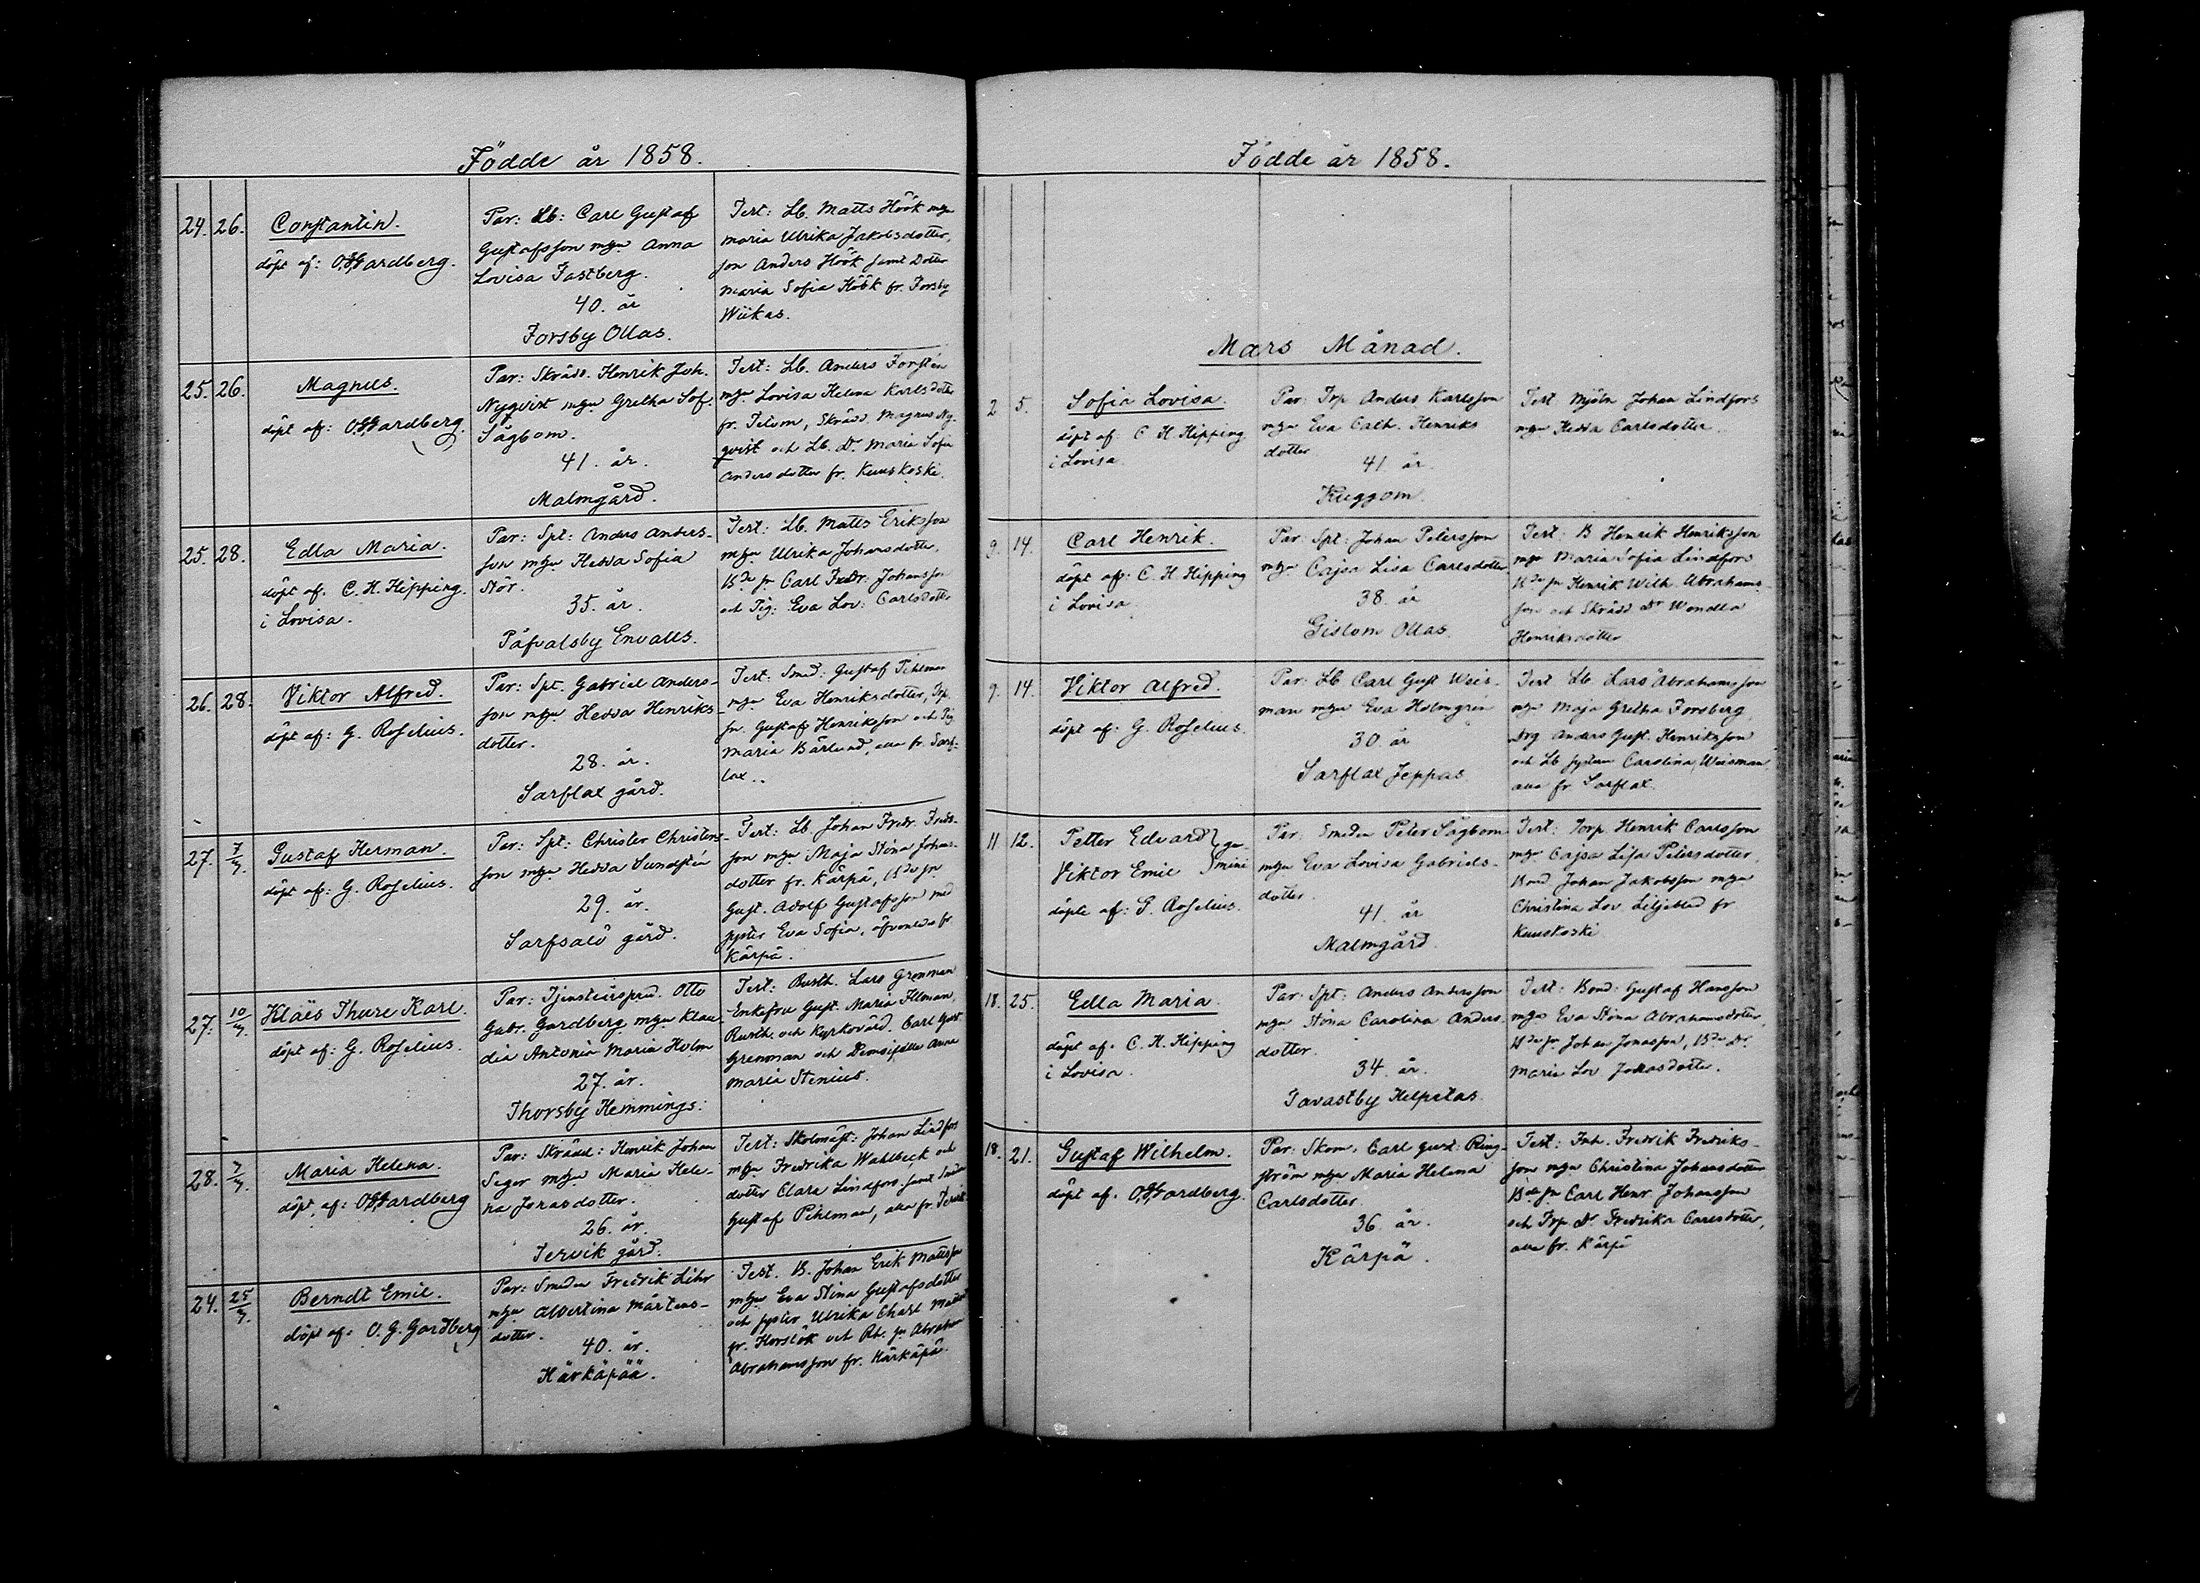 Födde år 1858.
24. 26. Constantin.
döpt af: O.G.Gardberg.
Par: Lb: Carl Gustaf
Gustafsson m/gn Anna
Lovisa Fastberg.
40. år
Forsby Ollas.
Test: Lb. Matts Höök m/gn
Maria Ulrika Jakobsdotter,
son Anders Höök samt Dotter
Maria Sofia Höök fr. Forsby
Wiikas.
25. 26. Magnus.
döpt af: O.G.Gardberg.
Par: Skrädd. Henrik Joh.
Nyqvist m/gn Gretha Sof.
Sågbom.
41. år.
Malmgård.
Test: Lb. Anders Forstén
m/gn Lovisa Helena Karlsdotter
fr. Tetom, Skrädd. Magnus Ny-
qvist och Lb. Dr Maria Sofia
Andersdotter fr. Kuuskoski.
25. 28. Edla Maria.
döpt af. C. H. Hipping.
i Lovisa.
Par: Spt: Anders Anders-
son m/gn Hedda Sofia
Stör.
35. år.
Påfvalsby Envalls.
Test: Lb. Matts Eriksson
m/gn Ulrika Johansdotter,
Bde sn Carl Fredr. Johansson
och Pig: Eva Lov: Carlsdotter
26. 28. Viktor Alfred.
döpt af: G. Roselius.
Par: Spt. Gabriel Anders-
son m/gn Hedda Henriks-
dotter.
28. år.
Sarflax gård.
Test: Smed: Gustaf Pihlman
m/gn Eva Henriksdotter, Trp.
sn. Gustaf Henriksson och Pig
Maria Bärlund, alla fr. Sarf-
lax..
27. 7/3. Gustaf Herman.
döpt af: G. Roselius.
Par: Spt: Christer Christers-
son m/gn Hedda Sundstén
29. år.
Sarfsalö gård.
Test: Lb. Johan Fredr. Freds-
son m/gn Maja Stina Johans-
dotter fr. Kärpä, Bde sn
Gust. Adolf Gustafsson med
syster Eva Sofia, äfvenledes fr
Kärpä.
27. 10/3. Kläes Thure Karl.
döpt af: G. Roselius.
Par: Tjensteinspred. Otto
Gabr. Gardberg m/gn Klau-
dia Antonia Maria Holm
27. år.
Thorsby Hemmings:
Test: Rusth. Lars Grenman
Enkefru Gust. Maria Illman,
Rusth. och Kyrkovärd. Carl Gust
Grenman och Demoiselle Anna
Maria Stenius.
28. 7/3. Maria Helena.
döpt af: O.G.Gardberg
Par: Skrädd: Henrik Johan
Seger m/gn Maria Hele-
na Jonasdotter.
26. år.
Tervik gård.
Test: Skolmäst: Johan Lindfors
m/gn Fredrika Wahlbeck och
dotter Clara Lindfors samt Smeden
Gustaf Pihlman, alla fr. Tervik
24. 25/3. Berndt Emil.
döpt af: O. G. Gardberg
Par: Smeden Fredrik Lihr
m/gn Albertina Mårtens-
dotter.
40. år.
Härkäpää.
Test. B. Johan Erik Mattsson
m/gn Eva Stina Gustafsdotter
och syster Ulrika Charl
fr. Horslök och Rh. sn Abraham
Abrahamsson fr. Härkäpä.
Födde år 1858.
Mars Månad.
2 5. Sofia Lovisa.
döpt af C H Hipping
i Lovisa
Par: Trp Anders Karlsson
m/gn Eva Cath. Henriks
dotter
41 år.
Kuggom.
Test Mjöln Johan Lindfors
m/gn Hedda Carlsdotter.
9. 14. Carl Henrik.
döpt af: C. H Hipping
i Lovisa
Par: Spt: Johan Petersson
m/gn Cajsa Lisa Carlsdotter
38. år
Gislom Ollas.
Test: B Henrik Henriksson
m/gn Maria Sofia Lindfors
Bde sn Henrik Wilh. Abrahams-
son och Skrädd Dr Wendla
Henriksdotter
9. 14. Viktor Alfred.
döpt af: G. Roselius.
Par: Lb Carl Gust Weis-
man m/gn Eva Holmgren
30. år
Sarflax Jeppas
Test Lb. Lars Abrahamsson
m/gn Maja Gretha Forsberg,
Drg Anders Gust. Henriksson
och Lb systern Carolina Weisman
alla fr Sarflax.
11 12. Petter Edvard } ge-
Viktor Emil } mini
döpte af: G. Roselius.
Par: Smeden Peter Sågbom
m/gn Eva Lovisa Gabriels-
dotter.
41. år
Malmgård.
Test: Torp Henrik Carlsson
m/gn Cajsa Lisa Petersdotter,
Bond Johan Jakobsson m/gn
Christina Lov Liljeblad fr
Kuuskoski
18. 25. Edla Maria.
döpt af. C. H. Hipping
i Lovisa.
Par: Spt: Anders Andersson
m/gn Stina Carolina Anders
dotter.
34. år.
Tavastby Helpitas
Test: Bond: Gustaf Hansson
m/gn Eva Stina Abrahamsdotter,
Bde sn Johan Jonasson, Bde Dr.
Maria Lov Jonasdotter.
18. 21. Gustaf Wilhelm.
döpt af. O.G.Gardberg.
Par: Skom. Carl Gust. Ring-
ström m/gn Maria Helena
Carlsdotter
36. år.
Kärpä.
Test: Inh. Fredrik Fredriks-
son m/gn Christina Johansdotter
Bde sn Carl Henr. Johansson
och Trp Dr Fredrika Carlsdotter,
alla fr. Kärpä